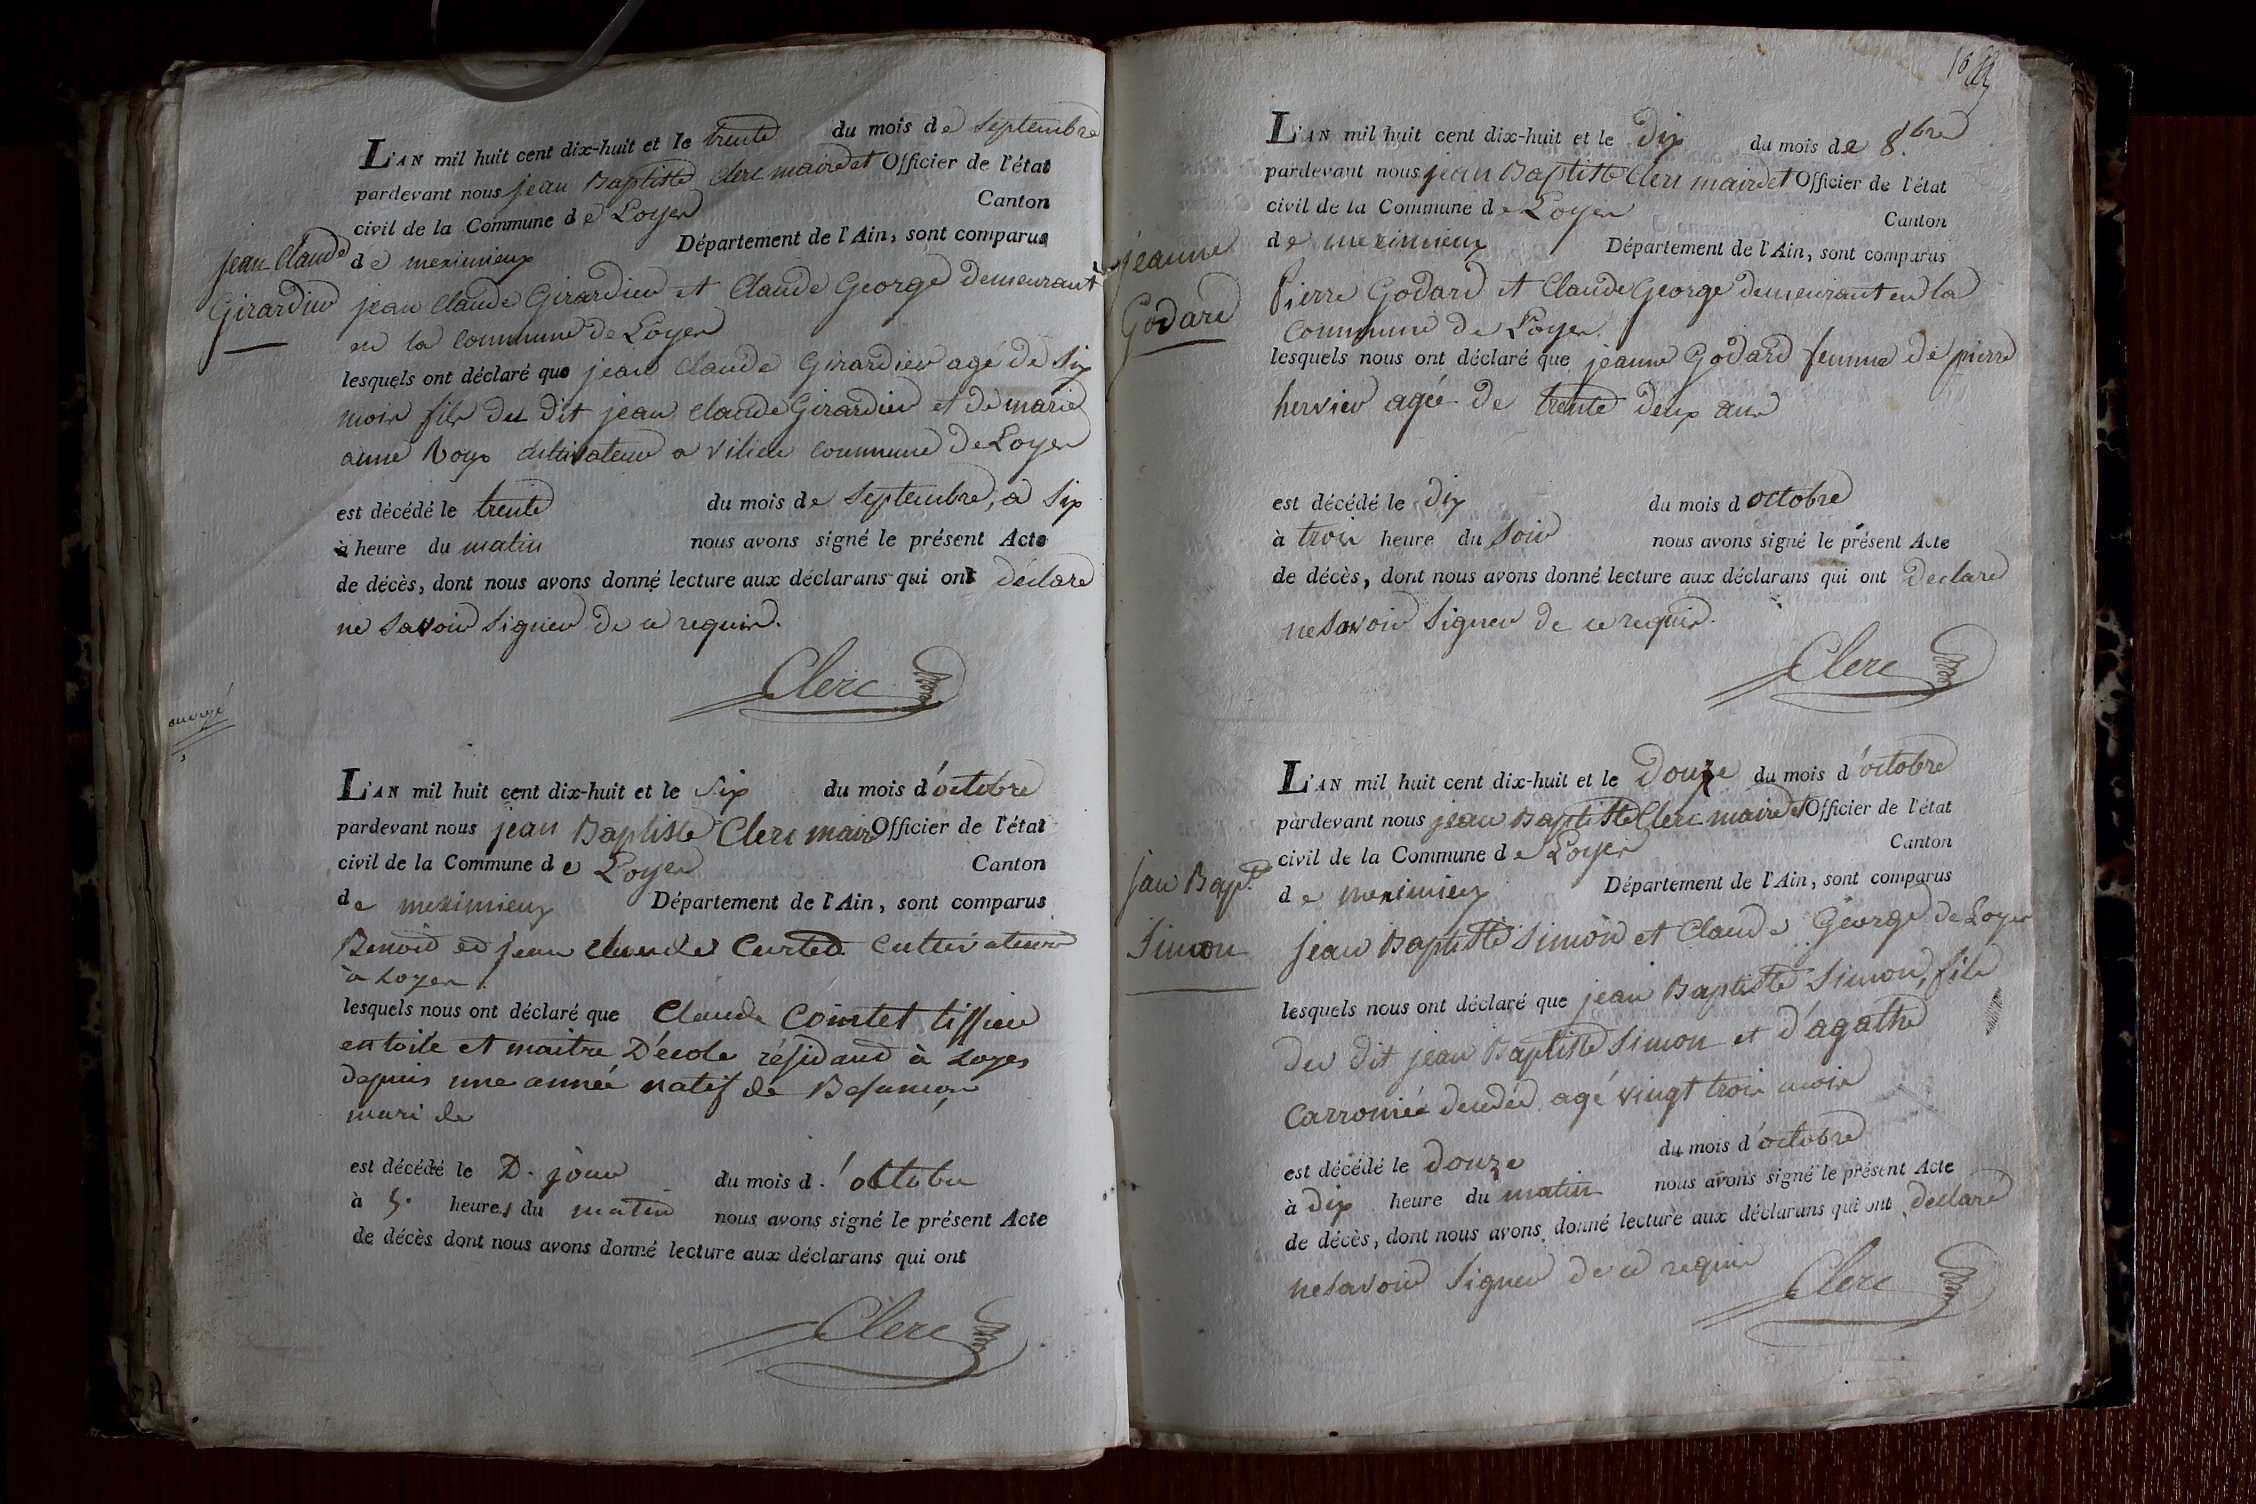 L'AN mil huit cent dix-huit et le trente du mois de Septembre
pardevant nous jean Baptiste Clerc maire et Officier de l'état
civil de la Commune de Loyes Canton
de meximieux Département de l'Ain, sont comparus
jean Claude
Girardier
jean Claude Girardier et Claude George demeurant
en la Commune de Loyes
lesquels ont déclaré que jean Claude Girardier agé de six
mois fils du dit jean Claude Girardier et de marie
anne Roux cultivateur a vilieu commune de Loyes
est décédé le trente du mois de Septembre, a six
à heure du matin nous avons signé le présent Acte
de décès, dont nous avons donné lecture aux déclarans qui ont déclaré
ne savoir signer de ce requis.
Clerc
L'AN mil huit cent dix-huit et le six du mois d'octobre
pardevant nous jean Baptiste Clerc maire Officier de l'état
civil de la Commune de Loyes Canton
de meximieux Département de l'Ain, sont comparus
Benoit et jean claude Curtet Cultivateurs
à Loyes
lesquels nous ont déclaré que Claude Comtet tissier
en toile et maitre D'école résidant à Loyes
depuis une année natif de Besançon
mari de
est décédé le D. jour du mois d'octobre
à 5. heures du matin nous avons signé le présent Acte
de décès dont nous avons donné lecture aux déclarans qui ont
Clerc
L'AN mil huit cent dix-huit et le dix du mois de 8.bre
pardevant nous jean Baptiste Clerc maire et Officier de l'état
civil de la Commune de Loyes Canton
de meximieux Département de l'Ain, sont comparus
jeanne
Godard
Pierre Godard et Claude George demeurant en la
Commune de Loyes
lesquels nous ont déclaré que jeanne Godard femme de pierre
hervier agée de trente deux ans
est décédé le dix du mois d octobre
à trois heure du soir nous avons signé le présent Acte
de décès, dont nous avons donné lecture aux déclarans qui ont declaré
ne savoir signer de ce requis.
Clerc
L'AN mil huit cent dix-huit et le douze du mois d'octobre
pardevant nous jean Baptiste Clerc maire et Officier de l'état
civil de la Commune de Loyes Canton
de meximieux Département de l'Ain, sont comparus
jean Bapt.te
Simon
jean Baptiste Simon et Claude George de Loyes
lesquels nous ont déclaré que jean Baptiste Simon, fils
du dit jean Baptiste Simon et d'agathe
Carronié agé vingt trois mois
est décédé le douze du mois d'octobre
à dix heure du matin nous avons signé le présent Acte
de décès, dont nous avons donné lecture aux déclarans qui ont declaré
ne savoir signer de ce requis
Clerc